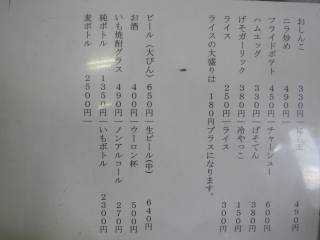 おしんこ 330円
ニラ炒め 490円 490円
フライドポテト 450円 チャーシュー 600円
ハムエッグ 330円 げそてん 380円
げそガーリック 380円 冷やっこ 150円
ライス 250円 ライス 300円
ライスの大盛りは 180円プラスになります。
ビール(大びん) 650円 生ビール(中) 640円
お酒 400円 ウーロン杯 500円
いも焼酎グラス 490円 ノンアルコール 270円
純ボトル 1350円 いもボトル 2300円
麦ボトル 2500円